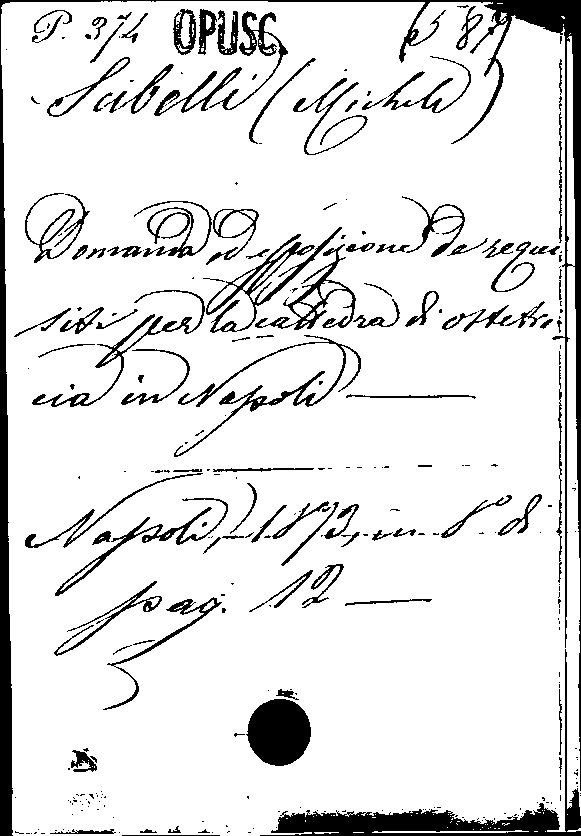 P. 374 OPUSC. (5 87)
Scibelli (Michele)
Domanda ed esposizione de requi-
siti per la cattedra di ostetri-
cia in Napoli —
Napoli, 1873, in 8° di
pag. 12 —